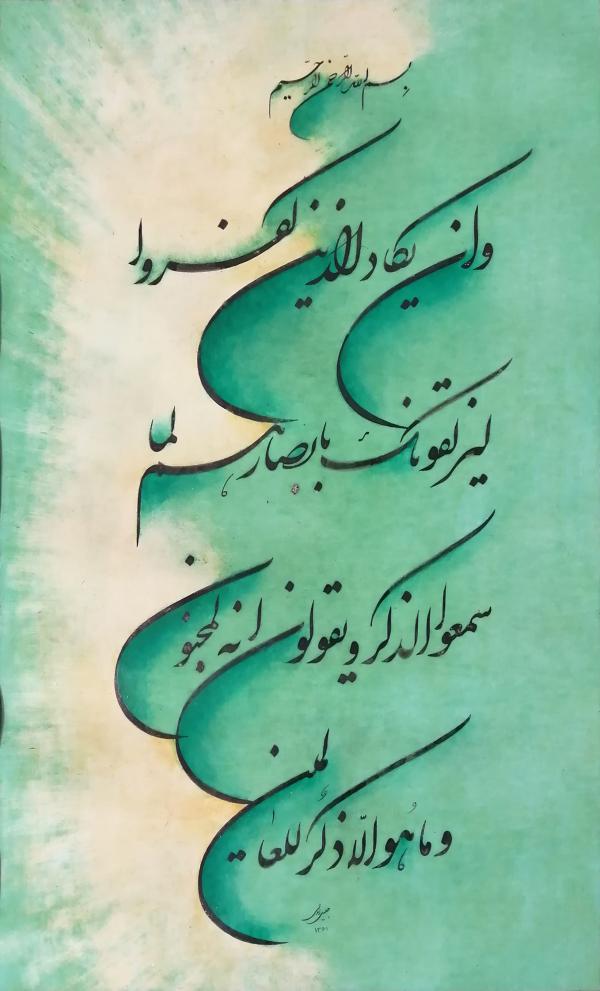 بسم الله الرحمن الرحیم
وان یکاد الذین کفروا
لیزلقونک بابصارهم لما
سمعوا الذکر و یقولون انه لمجنون
و ما هو الّا ذکرُ للعالمین
۱۳۶۱